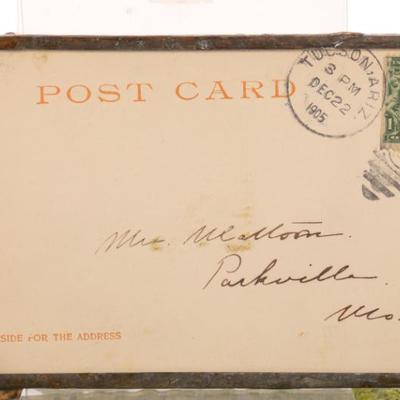 TUCSON, ARIZ.
3 PM
DEC 22
1905
POST CARD
1
Mrs. McMoon.
Parkville.
Mo.
SIDE FOR THE ADDRESS